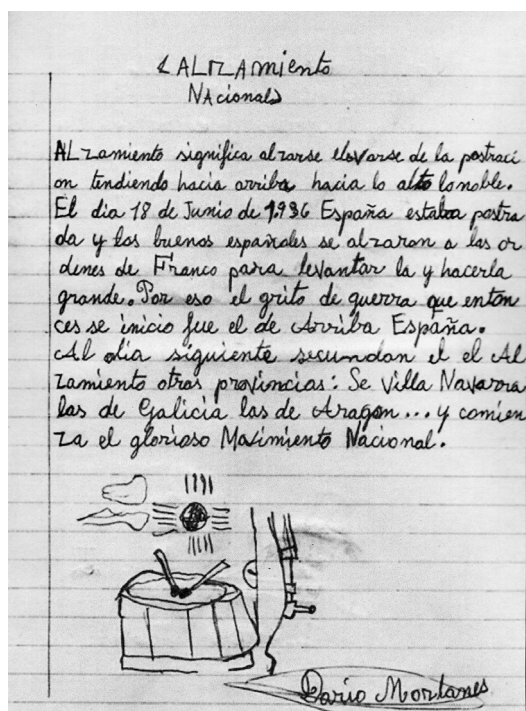 ALzAmiento
NAcionals
ALzamiento significa alzarse elevarse de la postraci
on tendiendo hacia arriba hacia lo alto lo noble.
El dia 18 de Junio de 1.936 España estaba postra
da y los buenos españoles se alzaron a las or
denes de Franco para levantar la y hacerla
grande. Por eso el grito de guerra que enton
ces se inicio fue el de Arriba España.
Al dia siguiente secundan el el Al
zamiento otras provincias: Se villa Navarra
las de Galicia las de Aragon... y comien
za el glorioso Movimiento Nacional.
Dario Mortanes